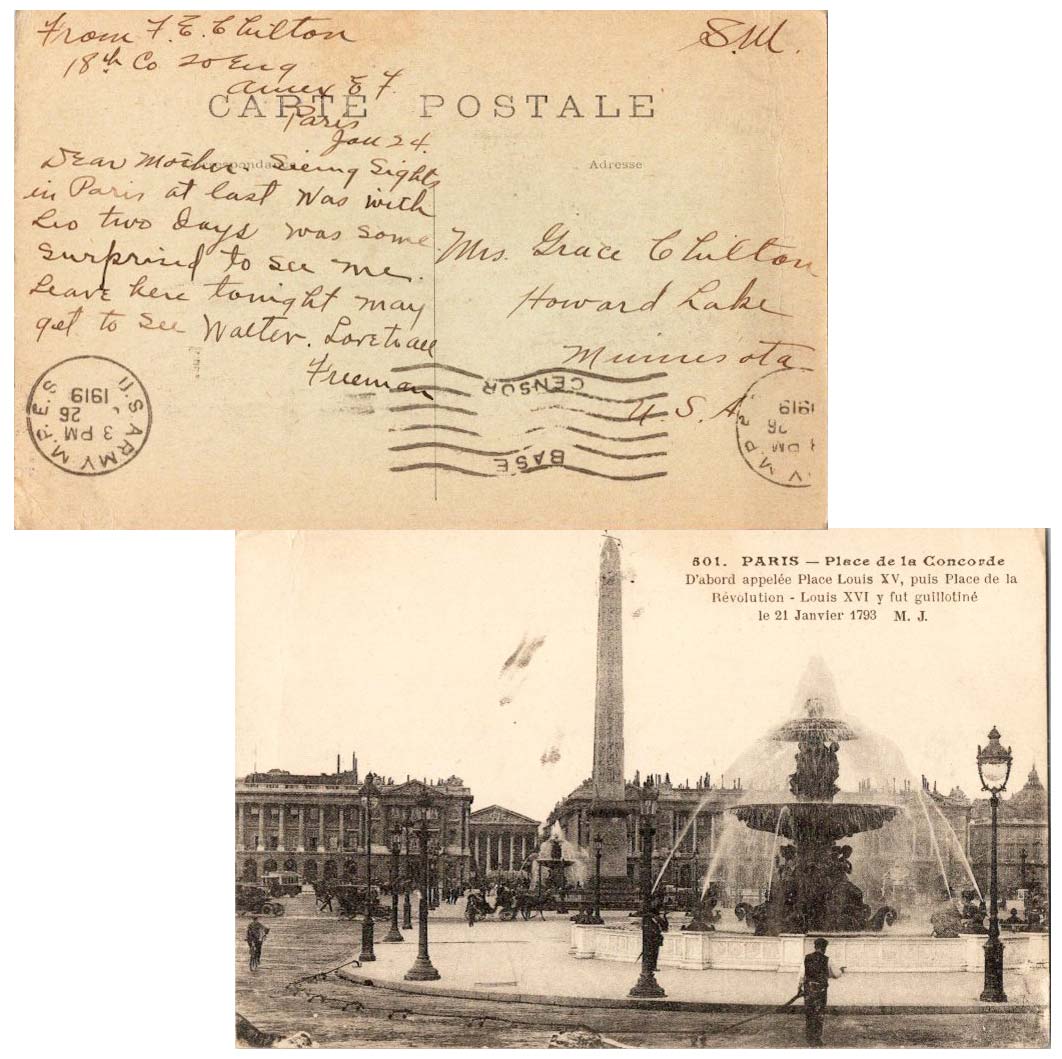 From F. E. Chilton
S.M.
18th Co 20 Eng
Amex E F.
CARTE POSTALE
Paris
Jan 24.
Correspondance
Adresse
Dear Mother. Sieing Sights
in Paris at last Was with
Leo two days was some
surprised to see me.
Leave here tonight may
get to see Walter. Love to all
Freeman
Mrs. Grace Chilton
Howard Lake
Minnesota
U. S. A.
U.S. ARMY M.P.E.S.
3 PM
26
1919
BASE
CENSOR
Y M.P.
3 PM
26
1919
501. PARIS — Place de la Concorde
D'abord appelée Place Louis XV, puis Place de la
Révolution - Louis XVI y fut guillotiné
le 21 Janvier 1793 M. J.